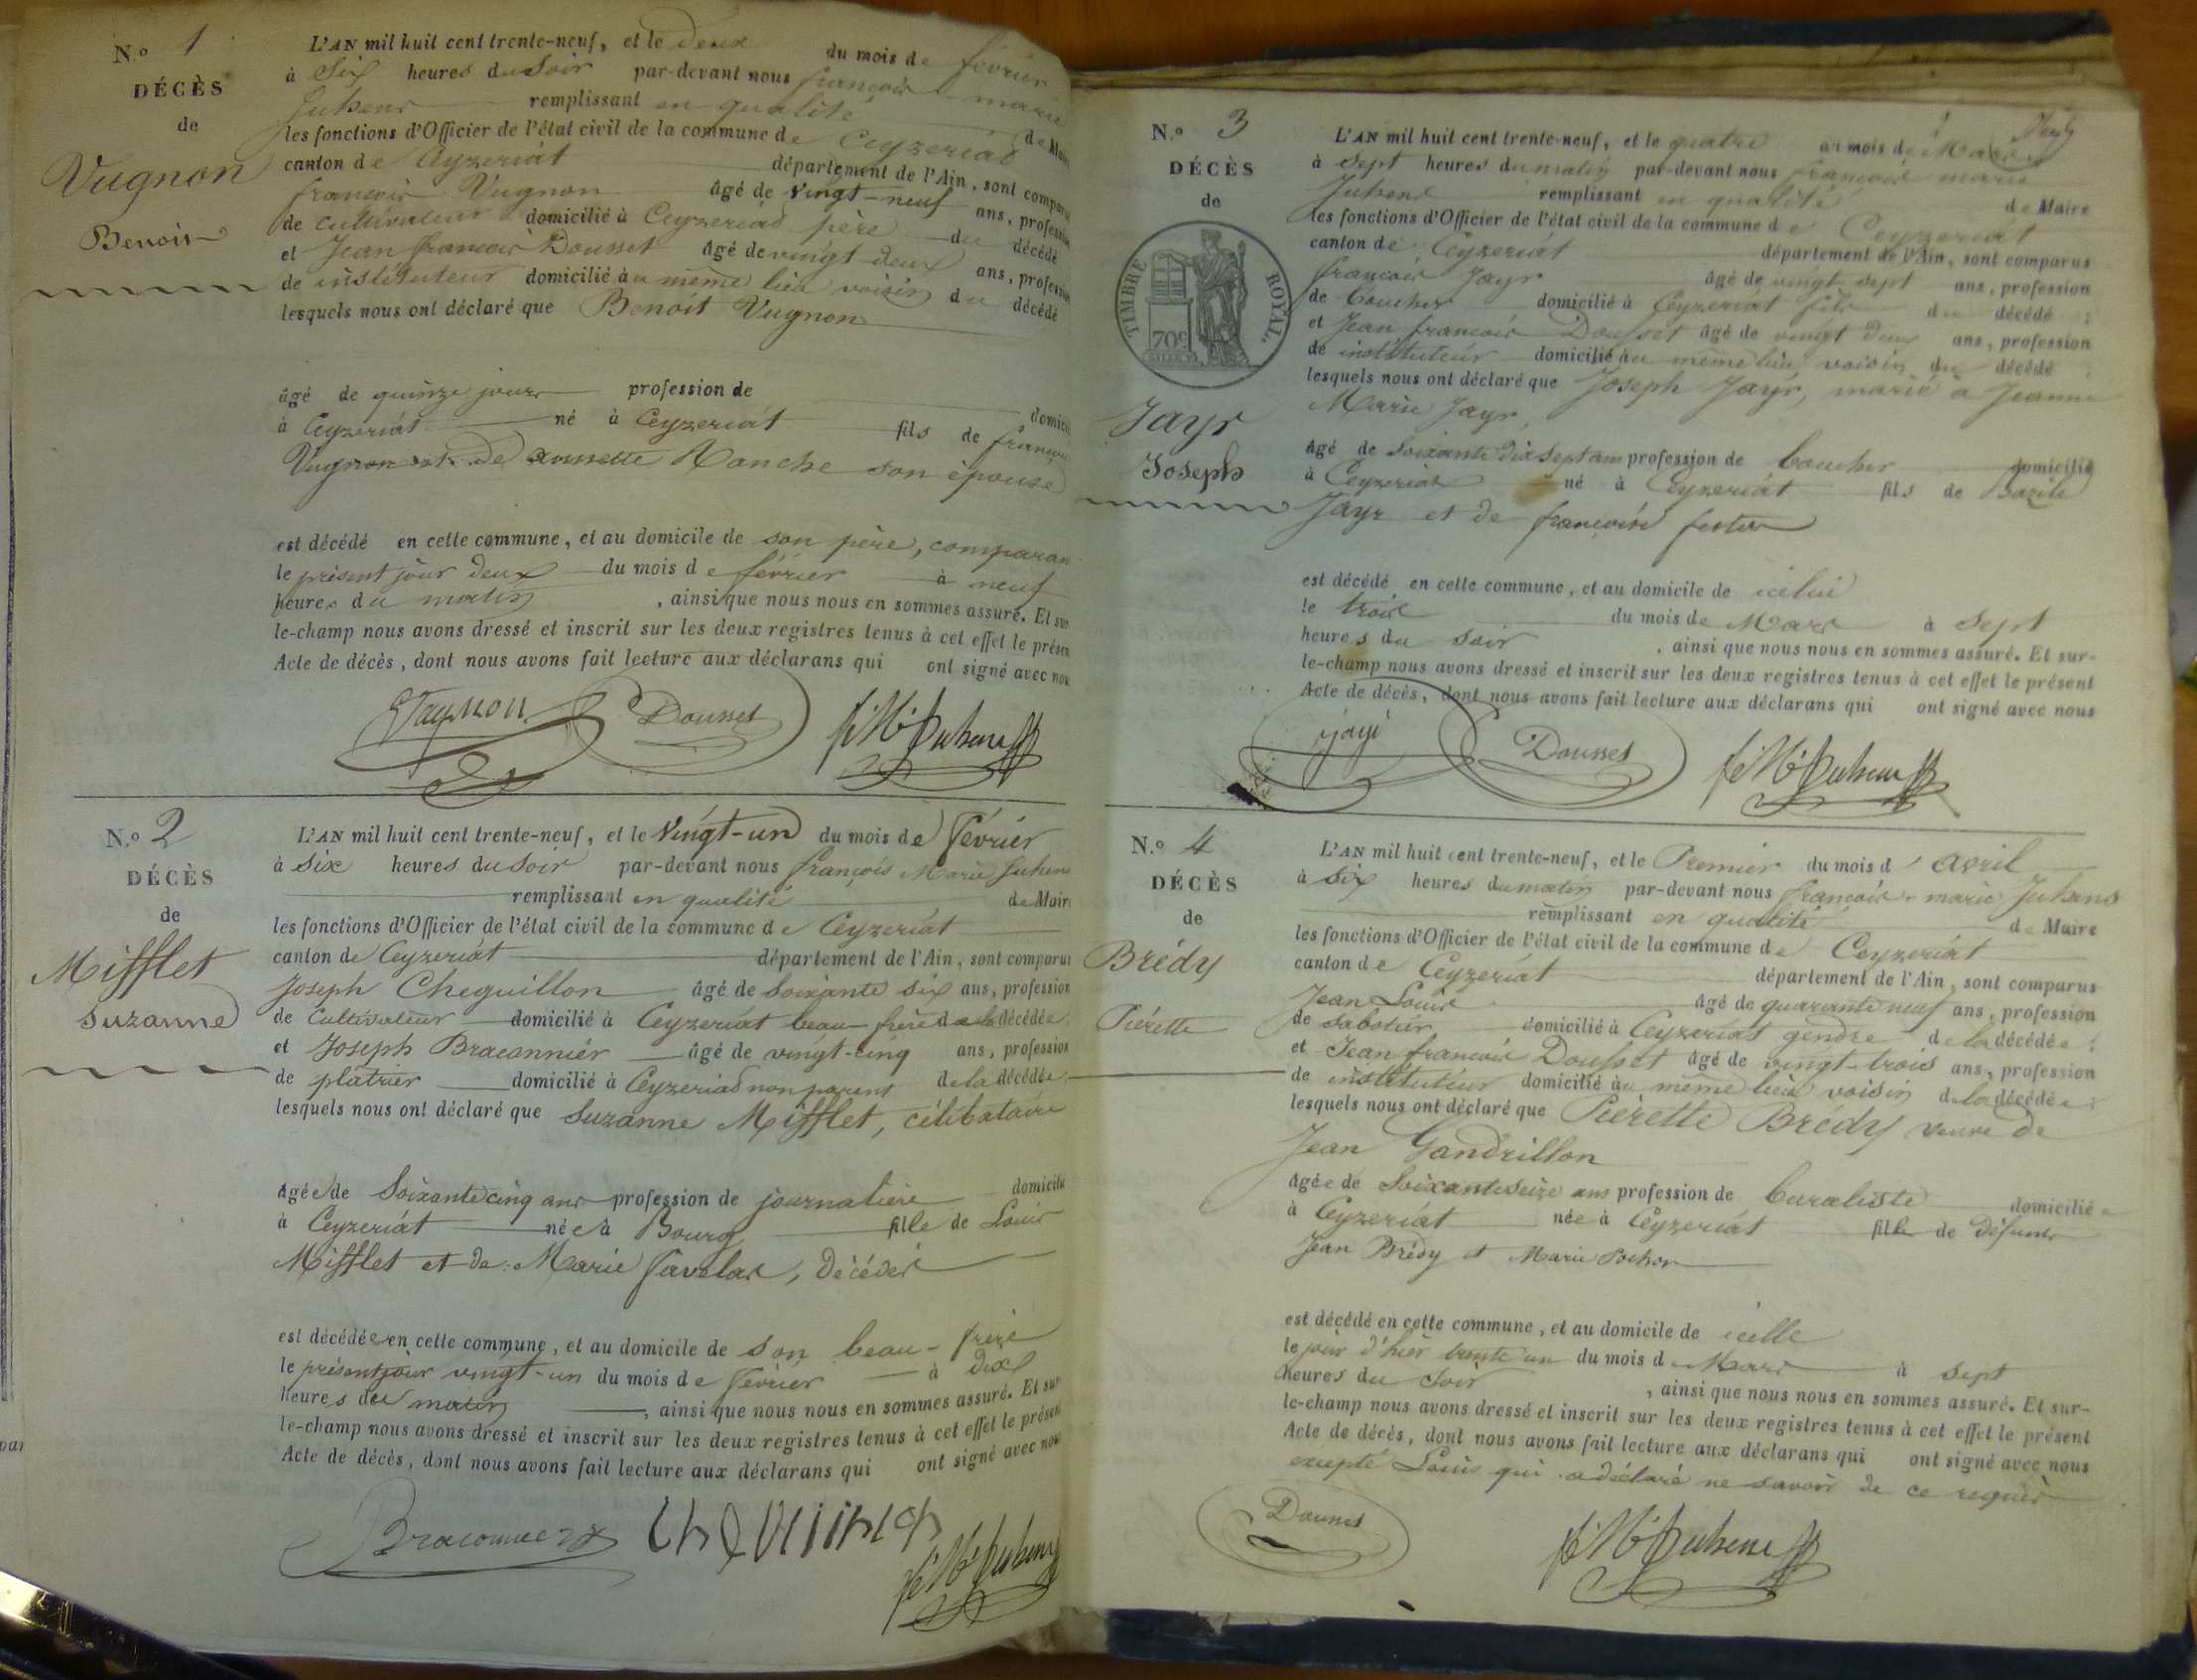 N.o 1
DÉCÈS
de
Vugnon
Benoit
L'AN mil huit cent trente-neuf, et le deux du mois de février
à six heures du soir par-devant nous françois marie
Juhens remplissant en qualité de Mair
les fonctions d'Officier de l'état civil de la commune de Ceyzeriat
canton de Ceyzeriat département de l'Ain, sont comparu
françois Vugnon âgé de vingt-neuf ans, profession
de cultivateur domicilié à Ceyzeriat père du décédé
et Jean françois Dousset âgé de vingt deux ans, profession
de instituteur domicilié au même lieu voisin du décédé
lesquels nous ont déclaré que Benoit Vugnon
âgé de quinze jours profession de domici
à Ceyzeriat né à Ceyzeriat fils de françois
Vugnon et de Ronche son épouse
est décédé en cette commune, et au domicile de son père, comparan
le présent jour deux du mois de février à neuf
heures du matin, ainsi que nous nous en sommes assuré. Et sur
le-champ nous avons dressé et inscrit sur les deux registres tenus à cet effet le présen
Acte de décès, dont nous avons fait lecture aux déclarans qui ont signé avec nou
Vugnon Dousset f. M. Juhens
N.o 2
DÉCÈS
de
Mifflet
Suzanne
L'AN mil huit cent trente-neuf, et le vingt-un du mois de février
à six heures du soir par-devant nous françois Marie Juhens
remplissant en qualité de Mair
les fonctions d'Officier de l'état civil de la commune de Ceyzeriat
canton de Ceyzeriat département de l'Ain, sont comparus
Joseph Chequillon âgé de soixante six ans, profession
de cultivateur domicilié à Ceyzeriat beau-frère de la décédée
et Joseph Braconnier âgé de vingt-cinq ans, profession
de platrier domicilié à Ceyzeriat non parent de la décédée
lesquels nous ont déclaré que Suzanne Mifflet, célibataire
âgée de soixante cinq ans profession de journalière domicilié
à Ceyzeriat née à Bourg fille de Louis
Mifflet et de Marie Favelas, décédés
est décédée en cette commune, et au domicile de son beau-frère
le présent jour vingt-un du mois de février à dix
heures du matin, ainsi que nous nous en sommes assuré. Et sur
le-champ nous avons dressé et inscrit sur les deux registres tenus à cet effet le présent
Acte de décès, dont nous avons fait lecture aux déclarans qui ont signé avec nou
Braconnier f. M. Juhens
N.o 3
DÉCÈS
de
TIMBRE ROYAL.
70c
Jayr
Joseph
L'AN mil huit cent trente-neuf, et le quatre du mois de Mars
à sept heures du matin par-devant nous françois marie
Juhens remplissant en qualité de Maire
les fonctions d'Officier de l'état civil de la commune de Ceyzeriat
canton de Ceyzeriat département de l'Ain, sont comparus
françois Jayr âgé de vingt sept ans, profession
de boucher domicilié à Ceyzeriat fils du décédé :
et Jean françois Dousset âgé de vingt deux ans, profession
de instituteur domicilié au même lieu voisin du décédé :
lesquels nous ont déclaré que Joseph Jayr, marié à Jeanne
Marie Jayr,
âgé de soixante dix sept ans profession de boucher domicilié
à Ceyzeriat né à Ceyzeriat fils de Bazile
Jayr et de françoise
est décédé en cette commune, et au domicile de icelui
le trois du mois de Mars à sept
heures du soir, ainsi que nous nous en sommes assuré. Et sur-
le-champ nous avons dressé et inscrit sur les deux registres tenus à cet effet le présent
Acte de décès, dont nous avons fait lecture aux déclarans qui ont signé avec nous
jayr Dousset f. M. Juhens
N.o 4
DÉCÈS
de
Brédy
Piérette
L'AN mil huit cent trente-neuf, et le Premier du mois d'avril
à six heures du matin par-devant nous françois marie Juhens
remplissant en qualité de Maire
les fonctions d'Officier de l'état civil de la commune de Ceyzeriat
canton de Ceyzeriat département de l'Ain, sont comparus
Jean Louis âgé de quarante neuf ans, profession
de sabotier domicilié à Ceyzeriat gendre de la décédée :
et Jean françois Dousset âgé de vingt-trois ans, profession
de instituteur domicilié au même lieu voisin de la décédée :
lesquels nous ont déclaré que Piérette Brédy veuve de
Jean Gandrillon
âgée de soixante seize ans profession de buraliste domiciliée
à Ceyzeriat née à Ceyzeriat fille de défunts
Jean Brédy et Marie Pochon
est décédé en cette commune, et au domicile de icelle
le jour d'hier trente un du mois de Mars à sept
heures du soir, ainsi que nous nous en sommes assuré. Et sur-
le-champ nous avons dressé et inscrit sur les deux registres tenus à cet effet le présent
Acte de décès, dont nous avons fait lecture aux déclarans qui ont signé avec nous
excepté Louis qui a déclaré ne savoir de ce requis
Dousset f. M. Juhens